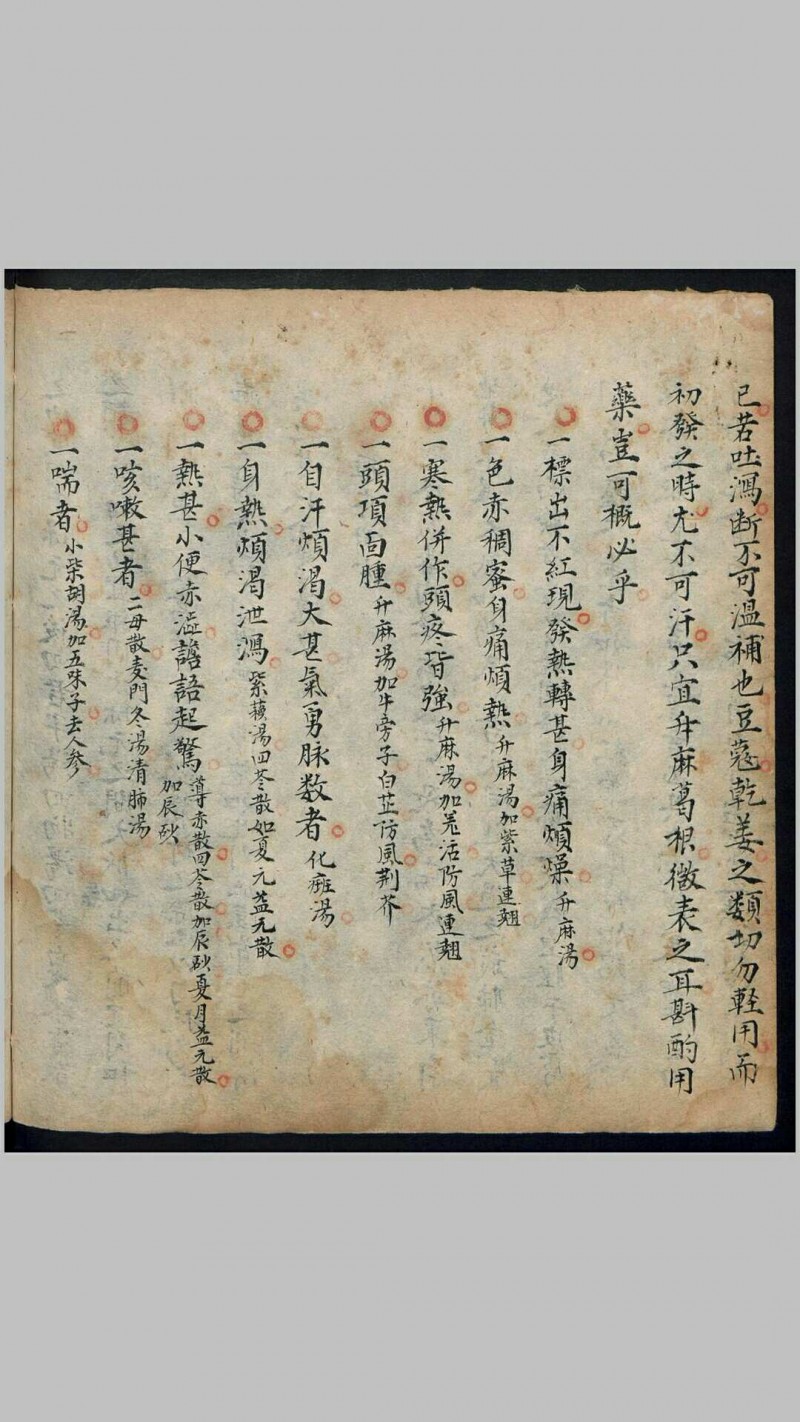 已若吐瀉斷不可溫補也豆蔻乾姜之類切勿軽用而
初發之時尤不可汗只宜升麻葛根微表之耳斟酌用
藥豈可概必乎
一標出不紅現發熱轉甚身痛煩燥升麻湯
一色赤稠蜜身痛煩熱升麻湯加紫草連翹
一寒熱併作頭疼背強升麻湯加羌活防風連翹
一頭項面腫升麻湯加牛旁子白芷防風荆芥
一自汗煩渴大甚氣勇脉数者化癍湯
一身熱煩渴泄瀉紫蘓湯四苓散如夏元益元散
一熱甚小便赤澁譫語起驚導赤散四苓散加辰砂夏月益元散
加辰砂
一咳嗽甚者二母散麦門冬湯清肺湯
一喘者小柴胡湯加五味子去人参